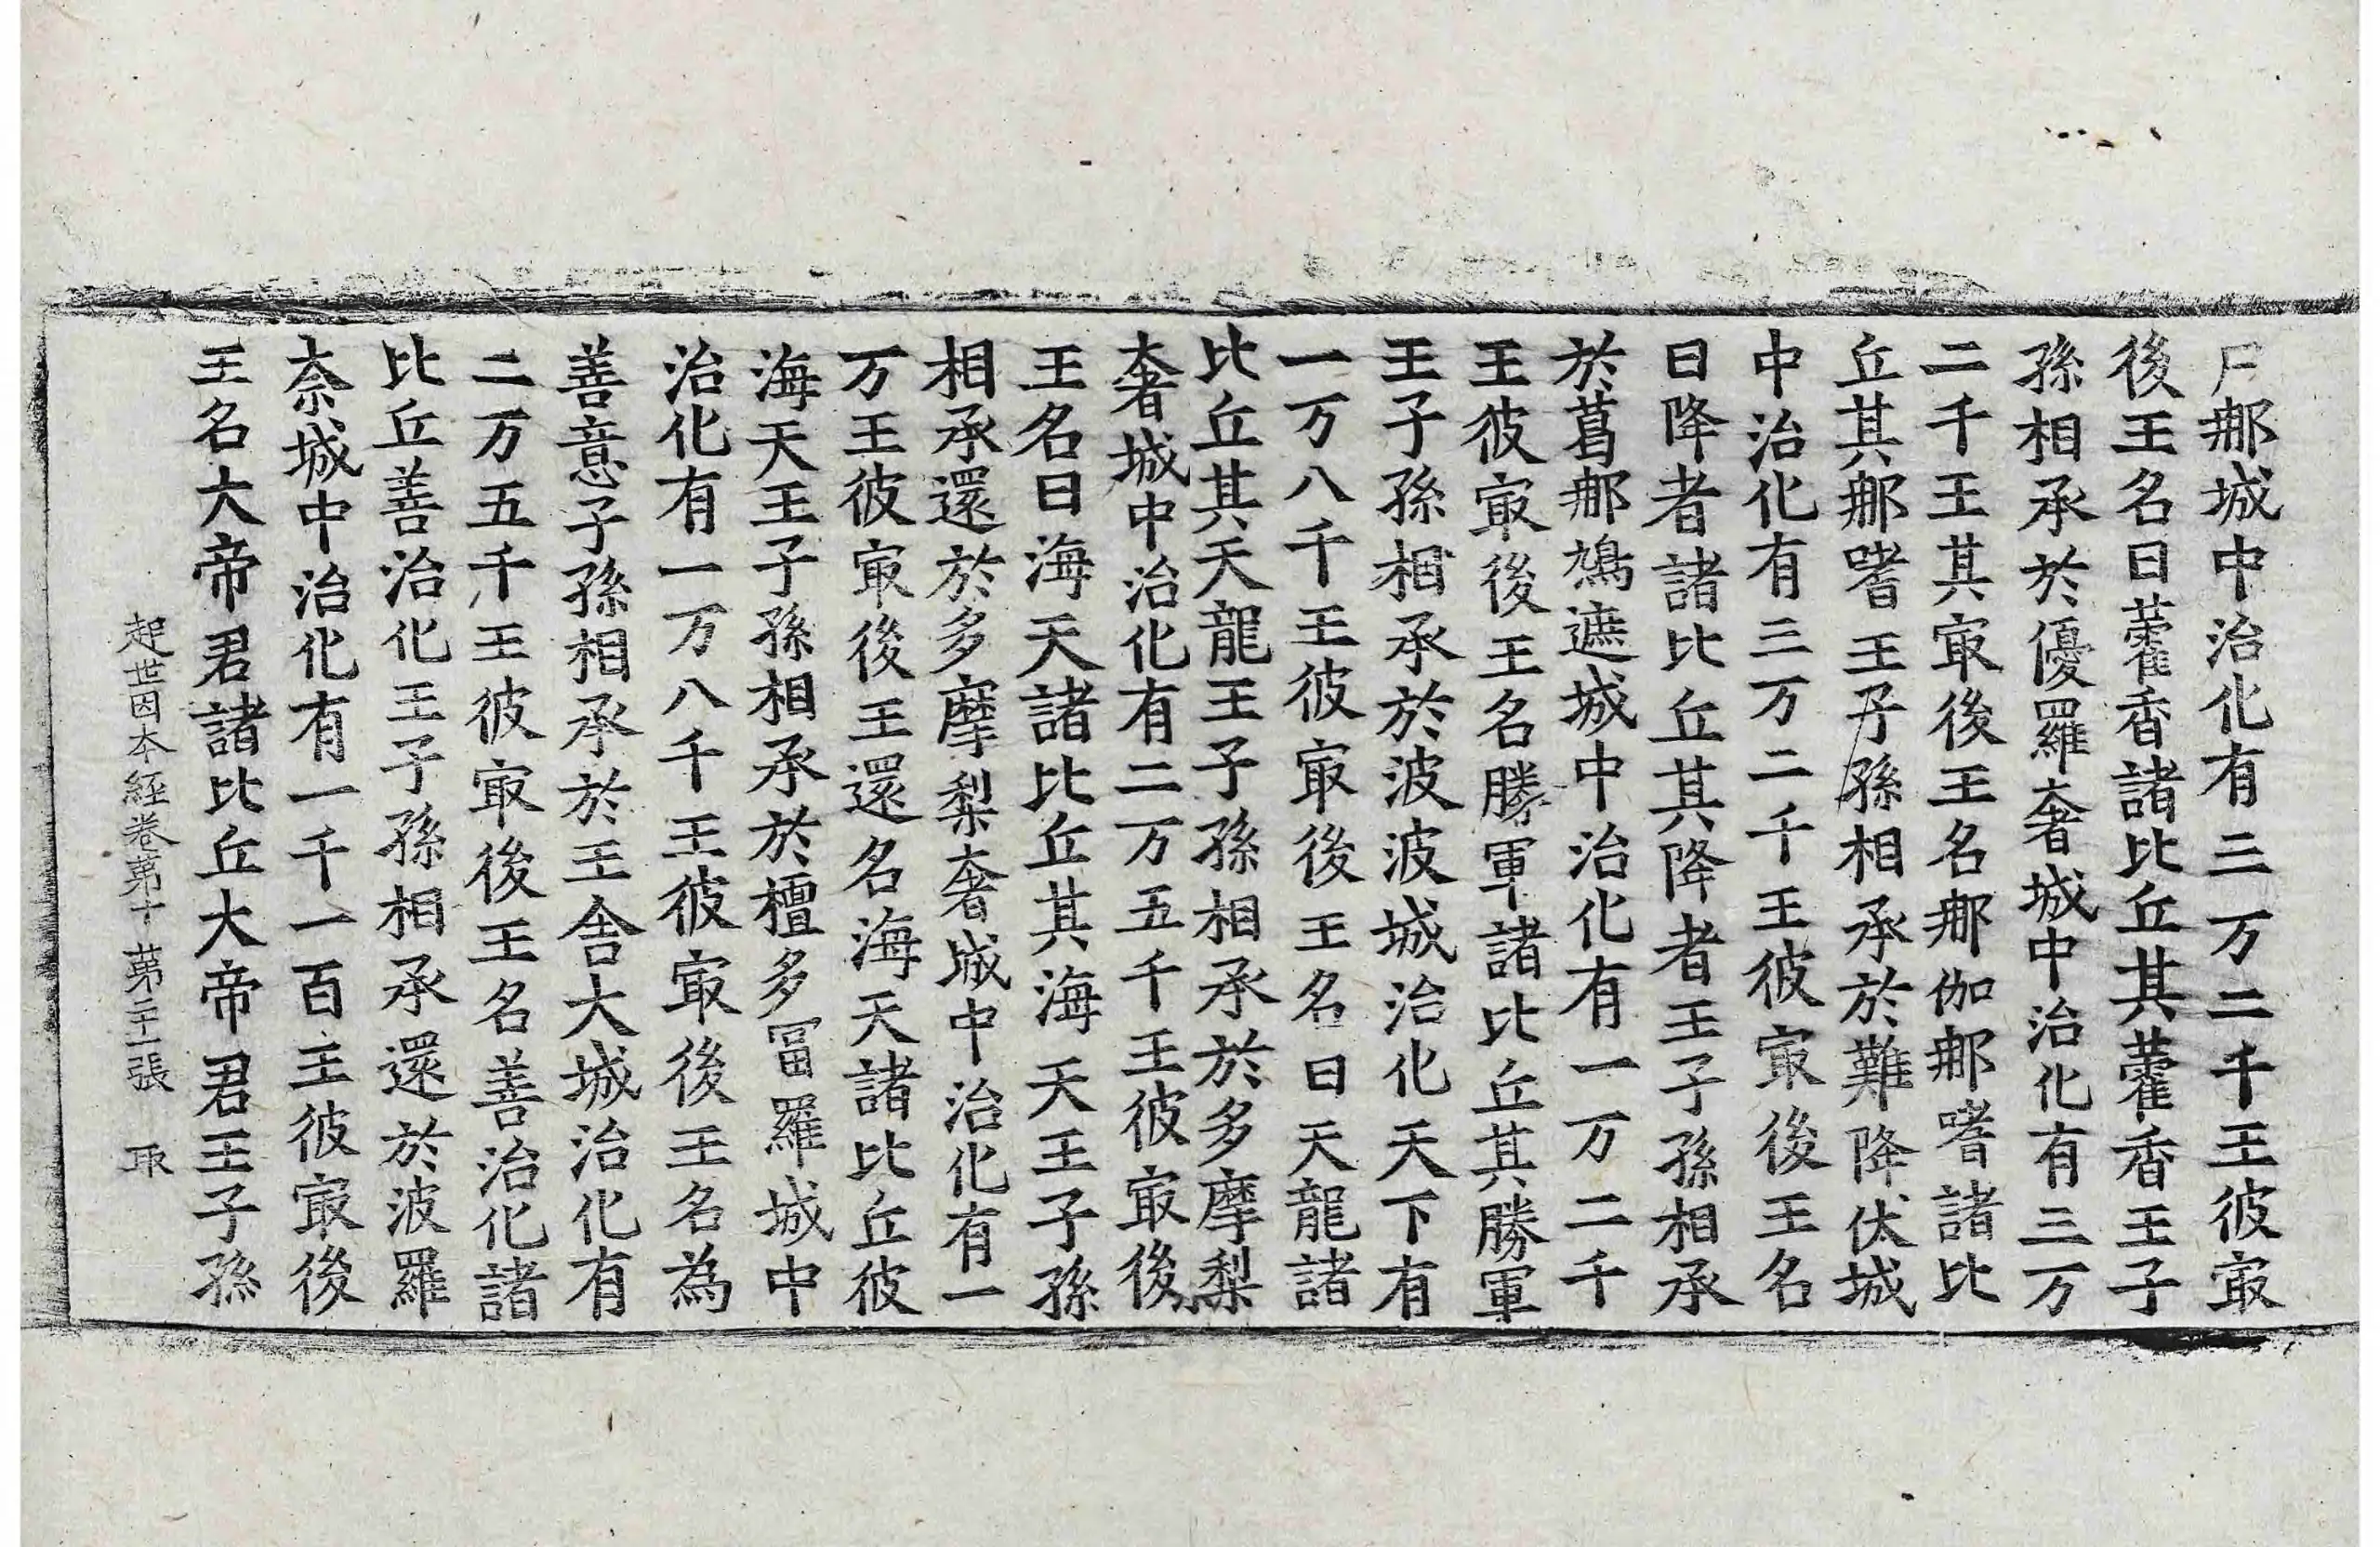 尸𨙻城中治化有三万二千王彼㝡
後王名曰藿香諸比丘其藿香王子
孫相承於優羅奢城中治化有三万
二千王其㝡後王名𨙻伽𨙻嗜諸比
丘其𨙻嗜王子孫相承於難降伏城
中治化有三万二千王彼㝡後王名
曰降者諸比丘其降者王子孫相承
於葛𨙻鳩遮城中治化有一万二千
王彼㝡後王名勝軍諸比丘其勝軍
王子孫相承於波波城治化天下有
一万八千王彼㝡後王名曰天龍諸
比丘其天龍王子孫相承於多摩梨
奢城中治化有二万五千王彼㝡後
王名曰海天諸比丘其海天王子孫
相承還於多摩梨奢城中治化有一
万王彼㝡後王還名海天諸比丘彼
海天王子孫相承於檀多冨羅城中
治化有一万八千王彼㝡後王名為
善意子孫相承於王舎大城治化有
二万五千王彼㝡後王名善治化諸
比丘善治化王子孫相承還於波羅
柰城中治化有一千一百王彼㝡後
王名大帝君諸比丘大帝君王子孫
起世因本経卷苐十 苐二十一張 取